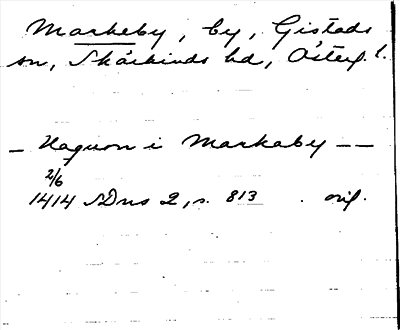 Markeby, by, Gistads
sn, Skärkinds hd, Österg. l.
– Haquon i Markaby – –
2/6
1414 SDns 2, s. 813 . orig.